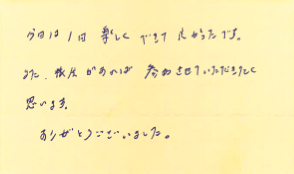 今日は1日楽しくできて良かったです。
また、機会があれば参加させていただきたく
思います。
ありがとうございました。